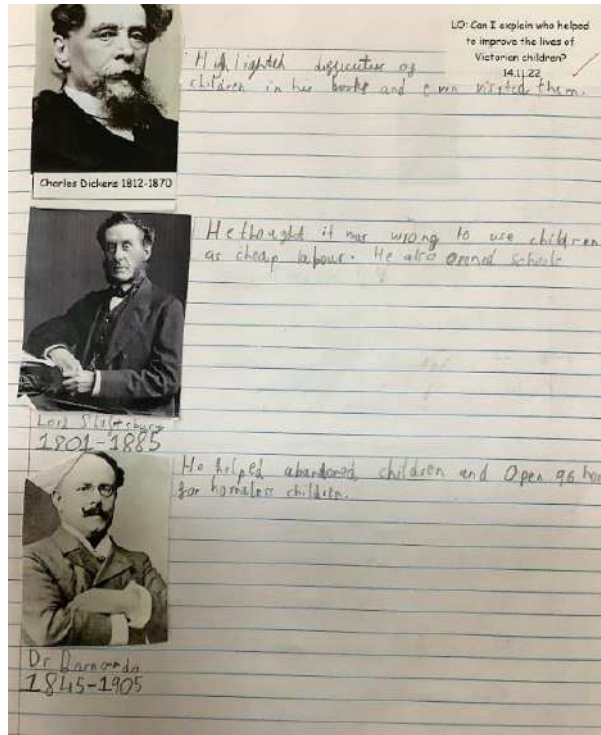 LO: Can I explain who helped
to improve the lives of
Victorian children?
14.11.22
Highlighted difficulties of
children in his books and even visited them.
Charles Dickens 1812-1870
He thought it was wrong to use children
as cheap labour. He also opened schools
Lord Shaftsbury
1801-1885
He helped abandoned children and Open 96 ho
for homeless children.
Dr Barnardo
1845-1905